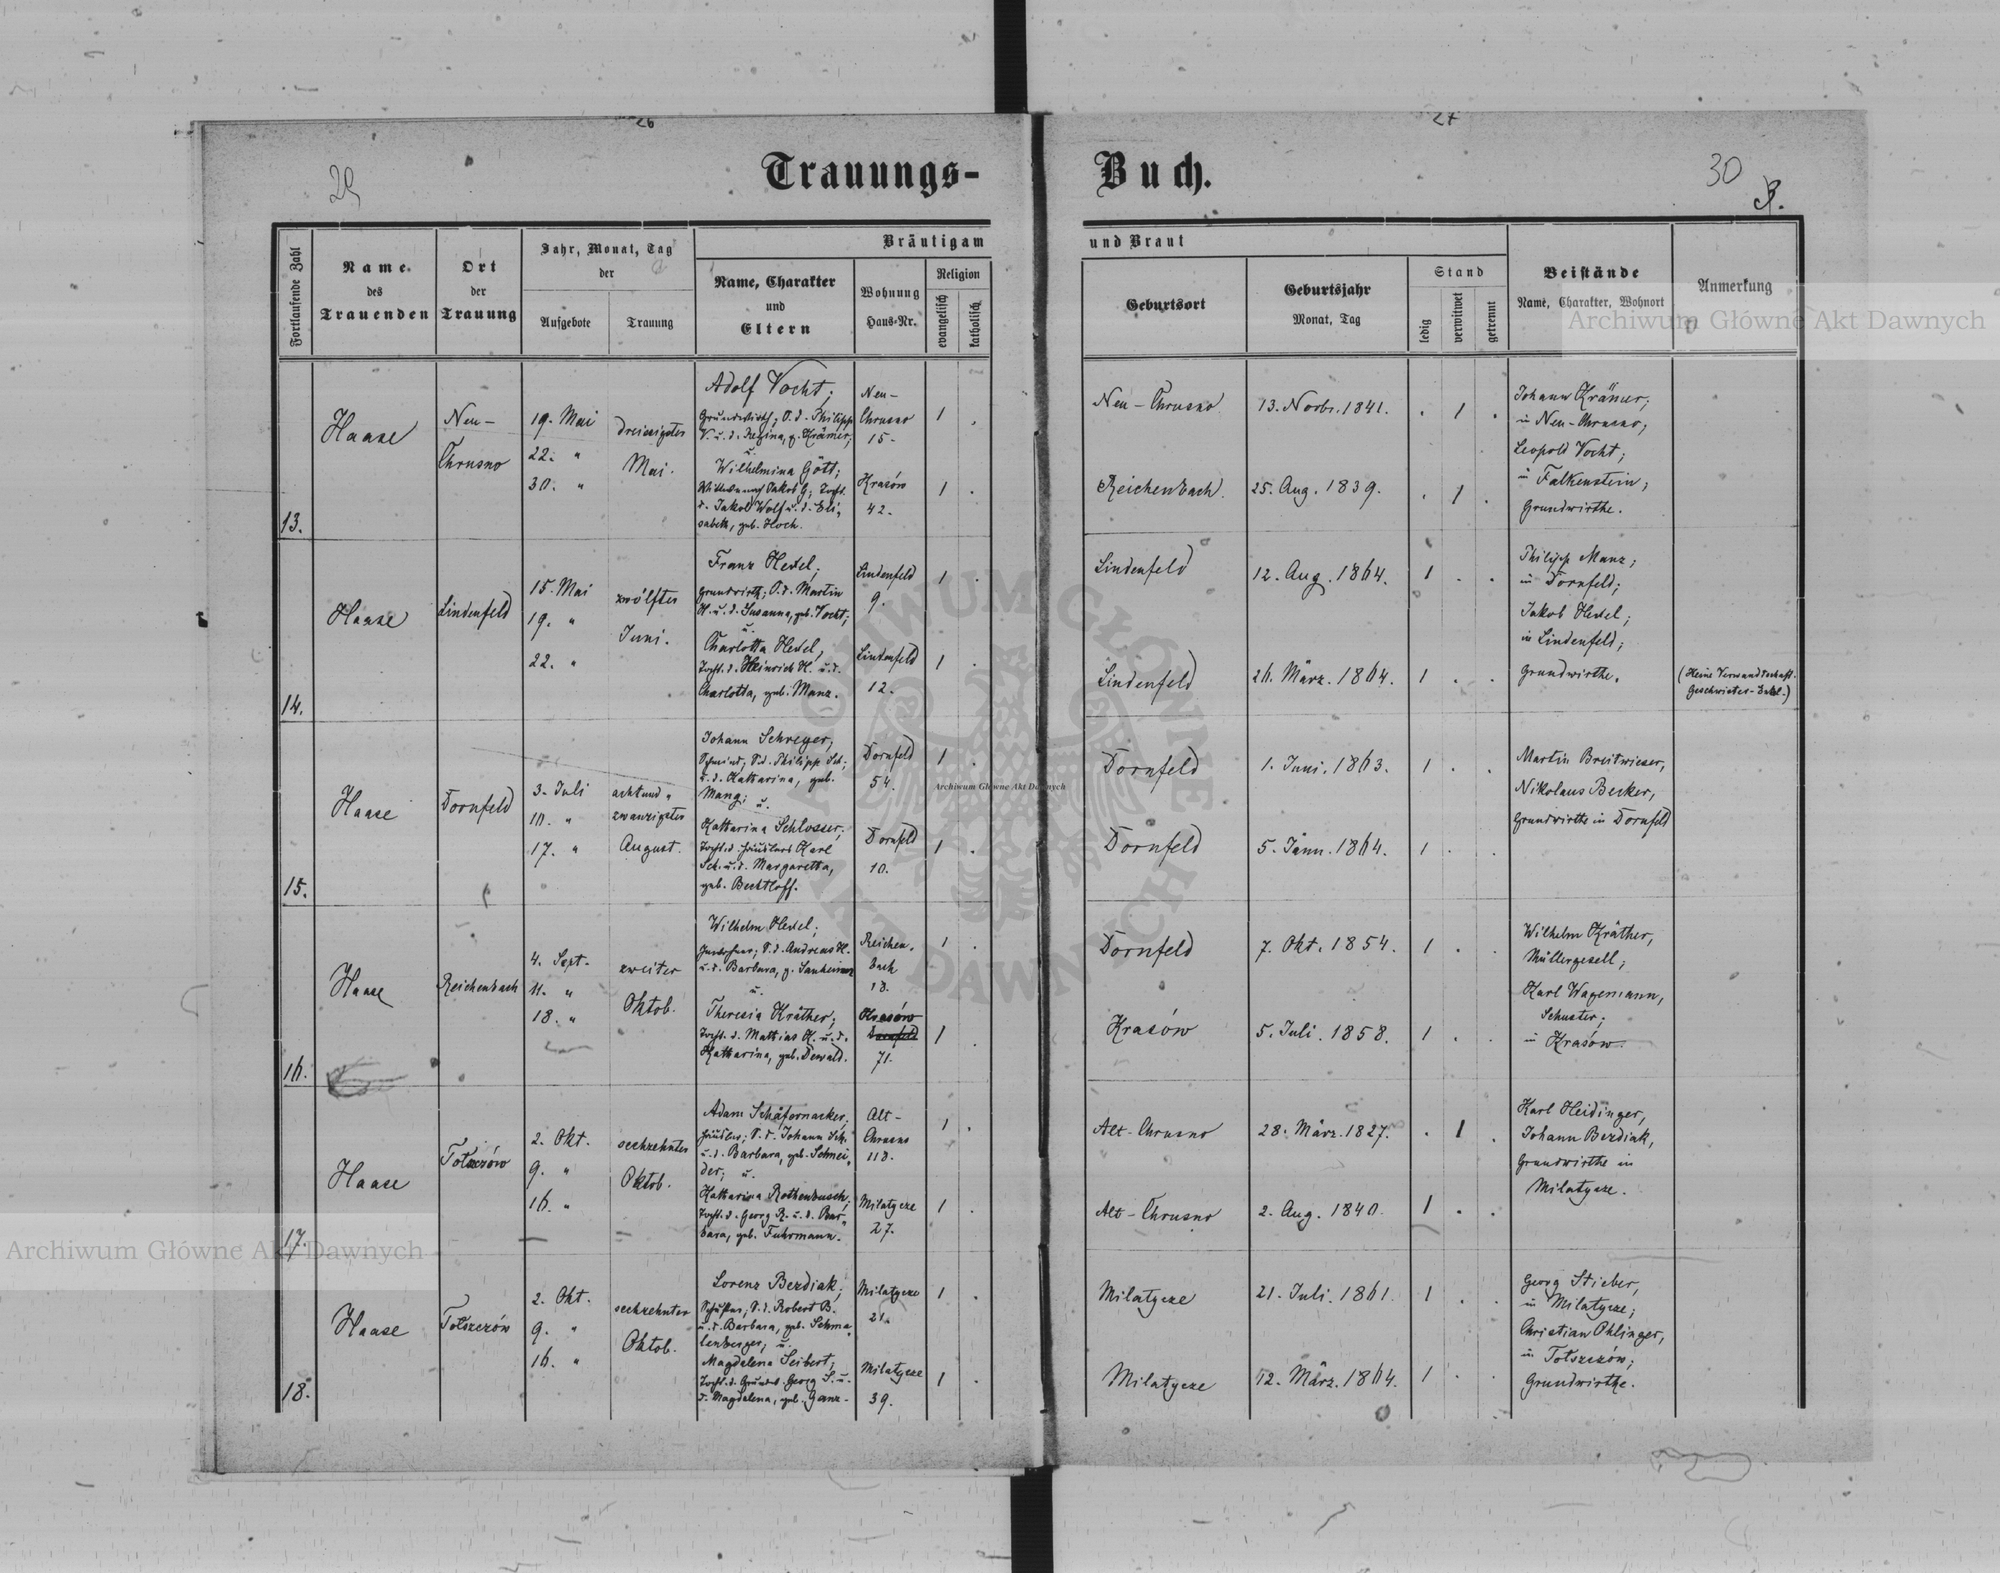 26
27
29
Trauungs-
Buch.
30
3.
Fortlaufende Zahl
Name
des
Trauenden
Ort
der
Trauung
Jahr, Monat, Tag
der
Aufgebote
Trauung
Bräutigam
Name, Charakter
und
Eltern
Wohnung
Haus-Nr.
Religion
evangelisch
katholisch
und Braut
Geburtsort
Geburtsjahr
Monat, Tag
Stand
ledig
verwitwet
getrennt
Beistände
Name, Charakter, Wohnort
Anmerkung
Archiwum Główne Akt Dawnych
13.
Haase
Neu-
Chrusno
19. Mai
22. "
30. "
dreissigster
Mai.
Adolf Vocht;
Grundwirth; S. d. Philipp
V. u. d. Regina, g. Krämer;
u.
Wilhelmina Gött;
Wittwe nach Jakob G; Tocht.
d. Jakob Wolf u. d. Eli-
sabeth, geb. Hoch.
Neu-
Chrusno
15-
Krasów
42.
1 .
1 .
Neu-Chrusno
13. Novbr. 1841.
. 1 .
Reichenbach.
25. Aug. 1839.
. 1 .
Johann Krämer;
in Neu-Chrusno;
Leopold Vocht;
in Falkenstein;
Grundwirthe.
14.
Haase
Lindenfeld
15. Mai
19. "
22. "
zwölfter
Juni.
Franz Hexel;
Grundwirth; S. d. Martin
H. u. d. Susanna, geb. Vocht;
u.
Charlotta Hexel,
Tocht. d. Heinrich H. u. d.
Charlotta, geb. Manz.
Lindenfeld
9.
Lindenfeld
12.
1 .
1 .
Lindenfeld
12. Aug. 1864.
1 . .
Lindenfeld
26. März. 1864.
1 . .
Philipp Manz;
in Dornfeld;
Jakob Hexel;
in Lindenfeld;
Grundwirthe.
(Keine Verwandtschaft.
Geschwister-Enkel.)
15.
Haase
Dornfeld
3. Juli
10. "
17. "
achtund-
zwanzigster
August.
Johann Schreyer;
Schmied; S. d. Philipp Sch;
u. d. Katharina, geb.
Mang; u.
Katharina Schlosser;
Tocht. d. Häuslers Karl
Sch. u. d. Margaretha,
geb. Bechtloff.
Dornfeld
54.
Dornfeld
10.
1 .
1 .
Dornfeld
1. Juni. 1863.
1 . .
Dornfeld
5. Jänn. 1864.
1 . .
Martin Breitwieser,
Nikolaus Becker,
Grundwirthe in Dornfeld
16.
Haase
Reichenbach
4. Sept.
11. "
18. "
zweiter
Oktob.
Wilhelm Hexel;
S. d. Andreas H.
u. d. Barbara, g. Sauheimer
u.
Theresia Kräther;
Tocht. d. Mathias K. u. d.
Katharina, geb. Dewald.
Reichen-
bach
18.
Krasów
Dornfeld
71.
1 .
1 .
Dornfeld
7. Okt. 1854.
1 . .
Krasów
5. Juli. 1858.
1 . .
Wilhelm Kräther,
Müllergesell;
Karl Wagemann,
Schuster;
in Krasów.
17.
Haase
Tolszczów
2. Okt.
9. "
16. "
sechzehnter
Oktob.
Adam Schäfornacker,
Häusler; S. d. Johann Sch.
u. d. Barbara, geb. Schnei-
der; u.
Katharina Rothenbusch;
Tocht. d. Georg R. u. d. Bar-
bara, geb. Fuhrmann.
Alt-
Chrusno
118.
Milatycze
27.
1 .
1 .
Alt-Chrusno
28. März. 1827.
. 1 .
Alt-Chrusno
2. Aug. 1840.
1 . .
Karl Heidinger,
Johann Bezdiak,
Grundwirthe in
Milatycze.
Archiwum Główne Akt Dawnych
18.
Haase
Tolszczów
2. Okt.
9. "
16. "
sechzehnter
Oktob.
Lorenz Bezdiak;
Schuster; S. d. Robert B.
u. d. Barbara, geb. Schma-
lenberger; u.
Magdalena Seibert;
Tocht. d. Grundw. Georg S. u.
d. Magdalena, geb. Ganz.
Milatycze
21.
Milatycze
39.
1 .
1 .
Milatycze
21. Juli. 1861.
1 . .
Milatycze
12. März. 1864.
1 . .
Georg Stieber,
in Milatycze;
Christian Ohlinger,
in Tolszczów;
Grundwirthe.
ARCHIWUM GŁÓWNE AKT DAWNYCH
Archiwum Główne Akt Dawnych